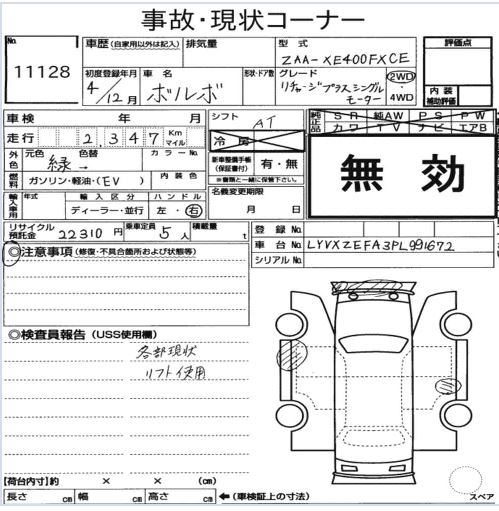 事故・現状コーナー
No. 11128
車歴 (自家用以外は記入)
排気量
型式 ZAA-XE400FXCE
評価点
初度登録年月 4/12月
車名 ボルボ
形状・ドア数
グレード リチャージプラスシングルモーター
2WD・4WD
内装補助評価
車検 年 月
シフト AT
純正品 SR 純AW PS PW
カワ TV ナビ エアB
走行 2,347 Km マイル
冷房
外色 元色 緑→ 色替 カラーNo.
新車整備手帳(保証書付) 有・無
※書類と一緒に保管下さい。
無効
燃料 ガソリン・軽油・(EV) 内装色
名義変更期限
月 日
輸入車用 年式 輸入区分 ディーラー・並行 ハンドル 左・右
リサイクル預託金 22310円 乗車定員 5人 積載量 t
登録No.
車台No. LYVXZEFA3PL991672
シリアルNo.
◎注意事項 (修復・不具合箇所および状態等)
◎検査員報告 (USS使用欄)
各部現状
リフト使用
【荷台内寸】約 × × (cm)
長さ cm 幅 cm 高さ cm ←(車検証上の寸法)
スペア